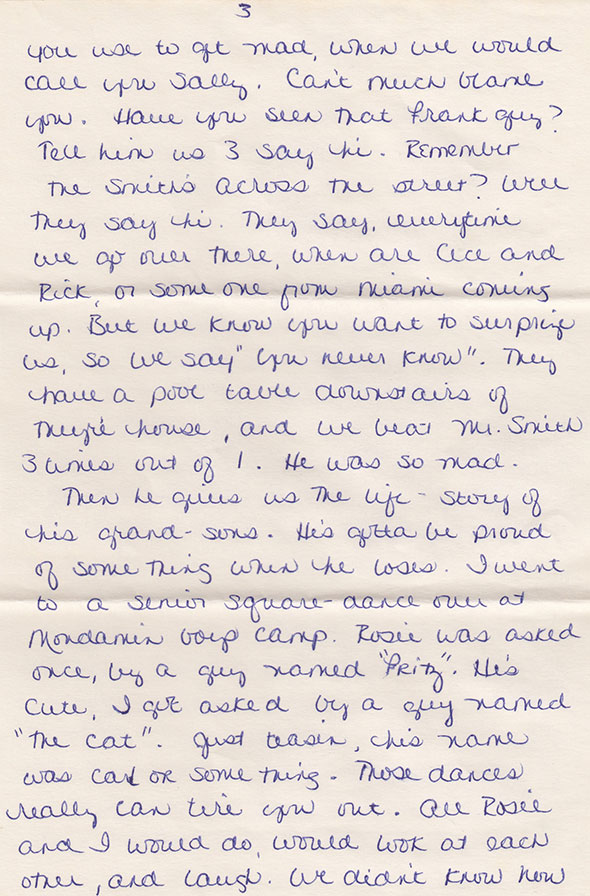 3
you use to get mad, when we would
call you Sally. Can't much blame
you. Have you seen that Frank guy?
Tell him us 3 say hi. Remember
the Smith's across the street? Well
they say hi. They say, everytime
we go over there, when are Cice and
Rick, or some one from Miami coming
up. But we know you want to surprize
us, so we say "you never know". They
have a pool table downstairs of
they're house, and we beat Mr. Smith
3 times out of 1. He was so mad.
Then he gives us the life-story of
his grand-sons. He's gotta be proud
of some thing when he loses. I went
to a senior square-dance over at
Mondamin boys camp. Rosie was asked
once, by a guy named "Fritz". He's
cute, I got asked by a guy named
"The Cat". Just teasin, his name
was Carl or some thing. Those dances
really can tire you out. All Rosie
and I would do, would look at each
other, and laugh. We didn't know how